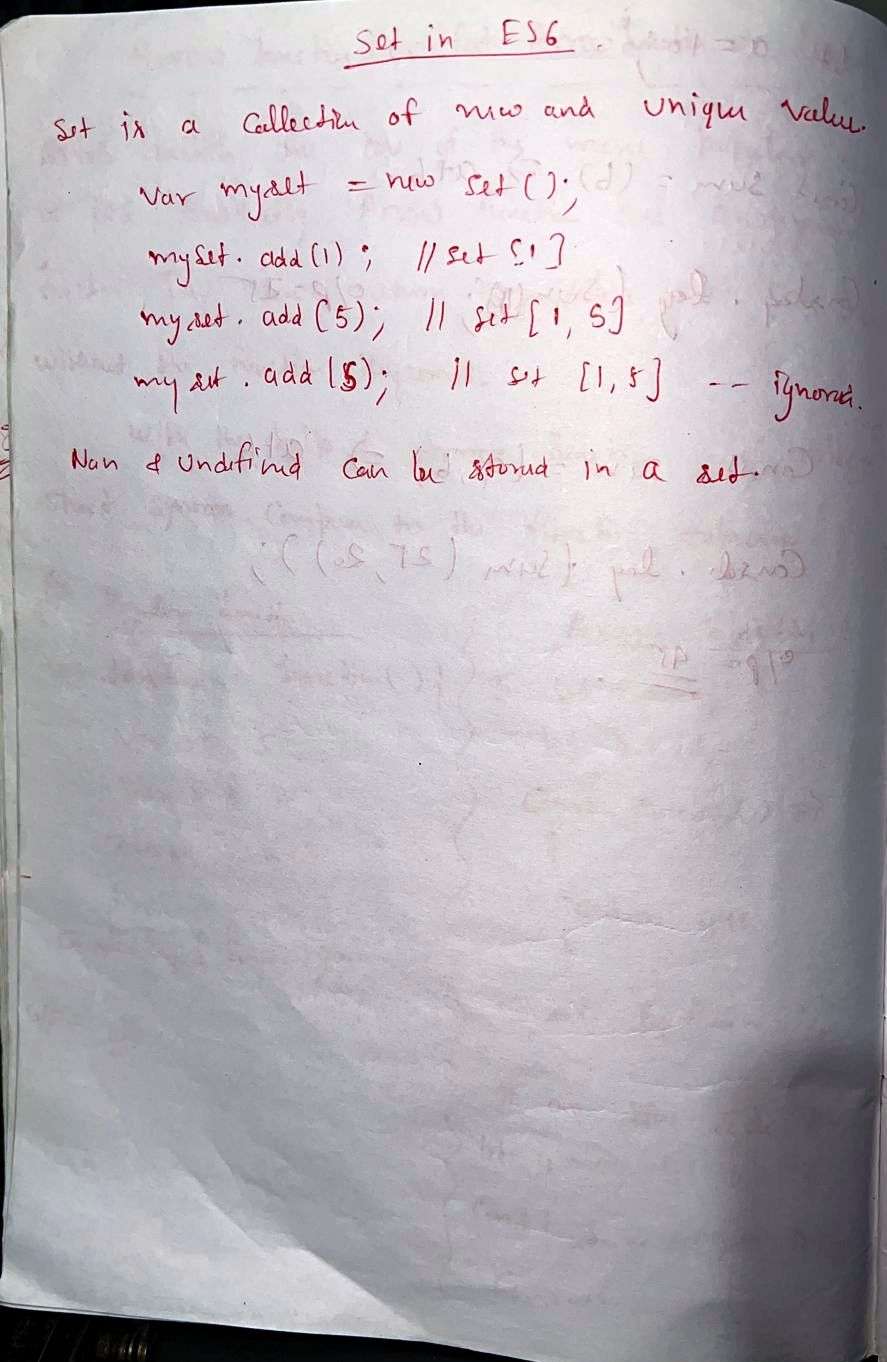 Set in ES6.
Set is a Collection of new and unique value.
Var myset = new set();
myset. add (1); // set [1]
myset. add (5); // set [1, 5]
myset. add (5); // set [1, 5] -- ignored.
Nan & Undefined can be stored in a set.